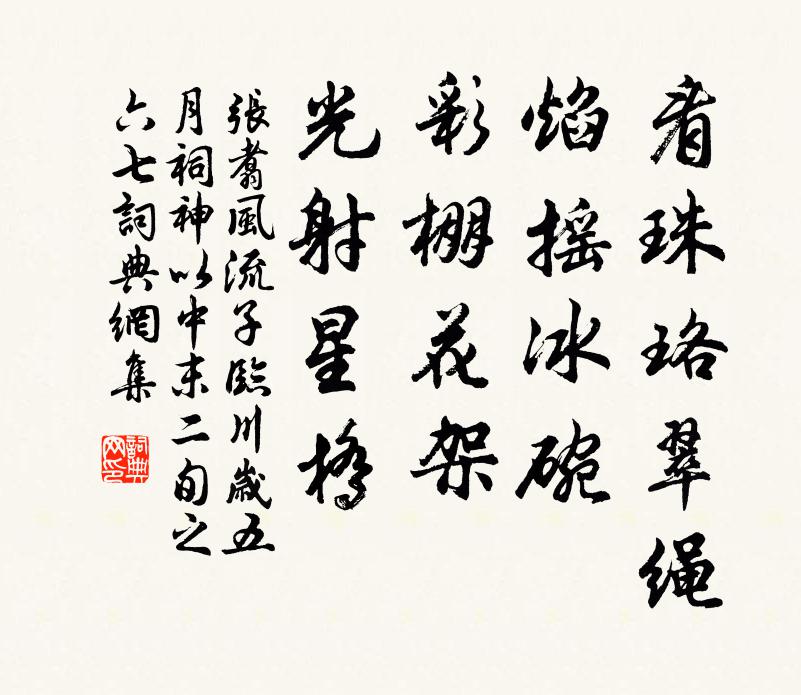 看珠珞翠绳
焰摇冰碗
彩棚花架
光射星桥
張翥風流子臨川歲五
月祠神以中末二旬之
六七詞典網集
詞典网印